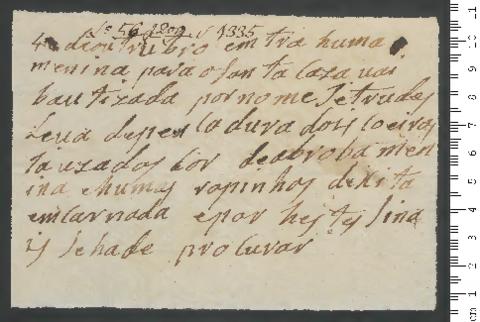 Lo 56 1200 1335
4 doutrubro em tra huma
menina para o Santa Caza vai
bautizada por nome Jetrudes
Leva despen la dura dois Coeiros
ta uzados Cor de abroba men
ina e humas ropinhos de xita
emcarnada e por hestes Sina
is Sehade procurar